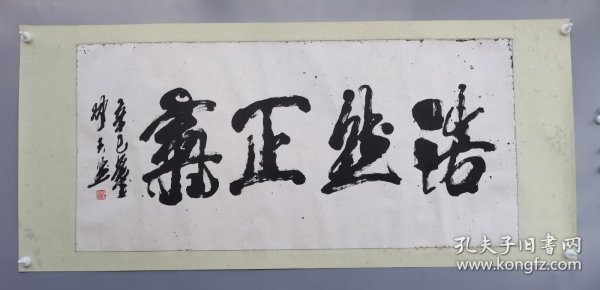 浩然正气
辛巳
孔夫子旧书网
www.kongfz.com